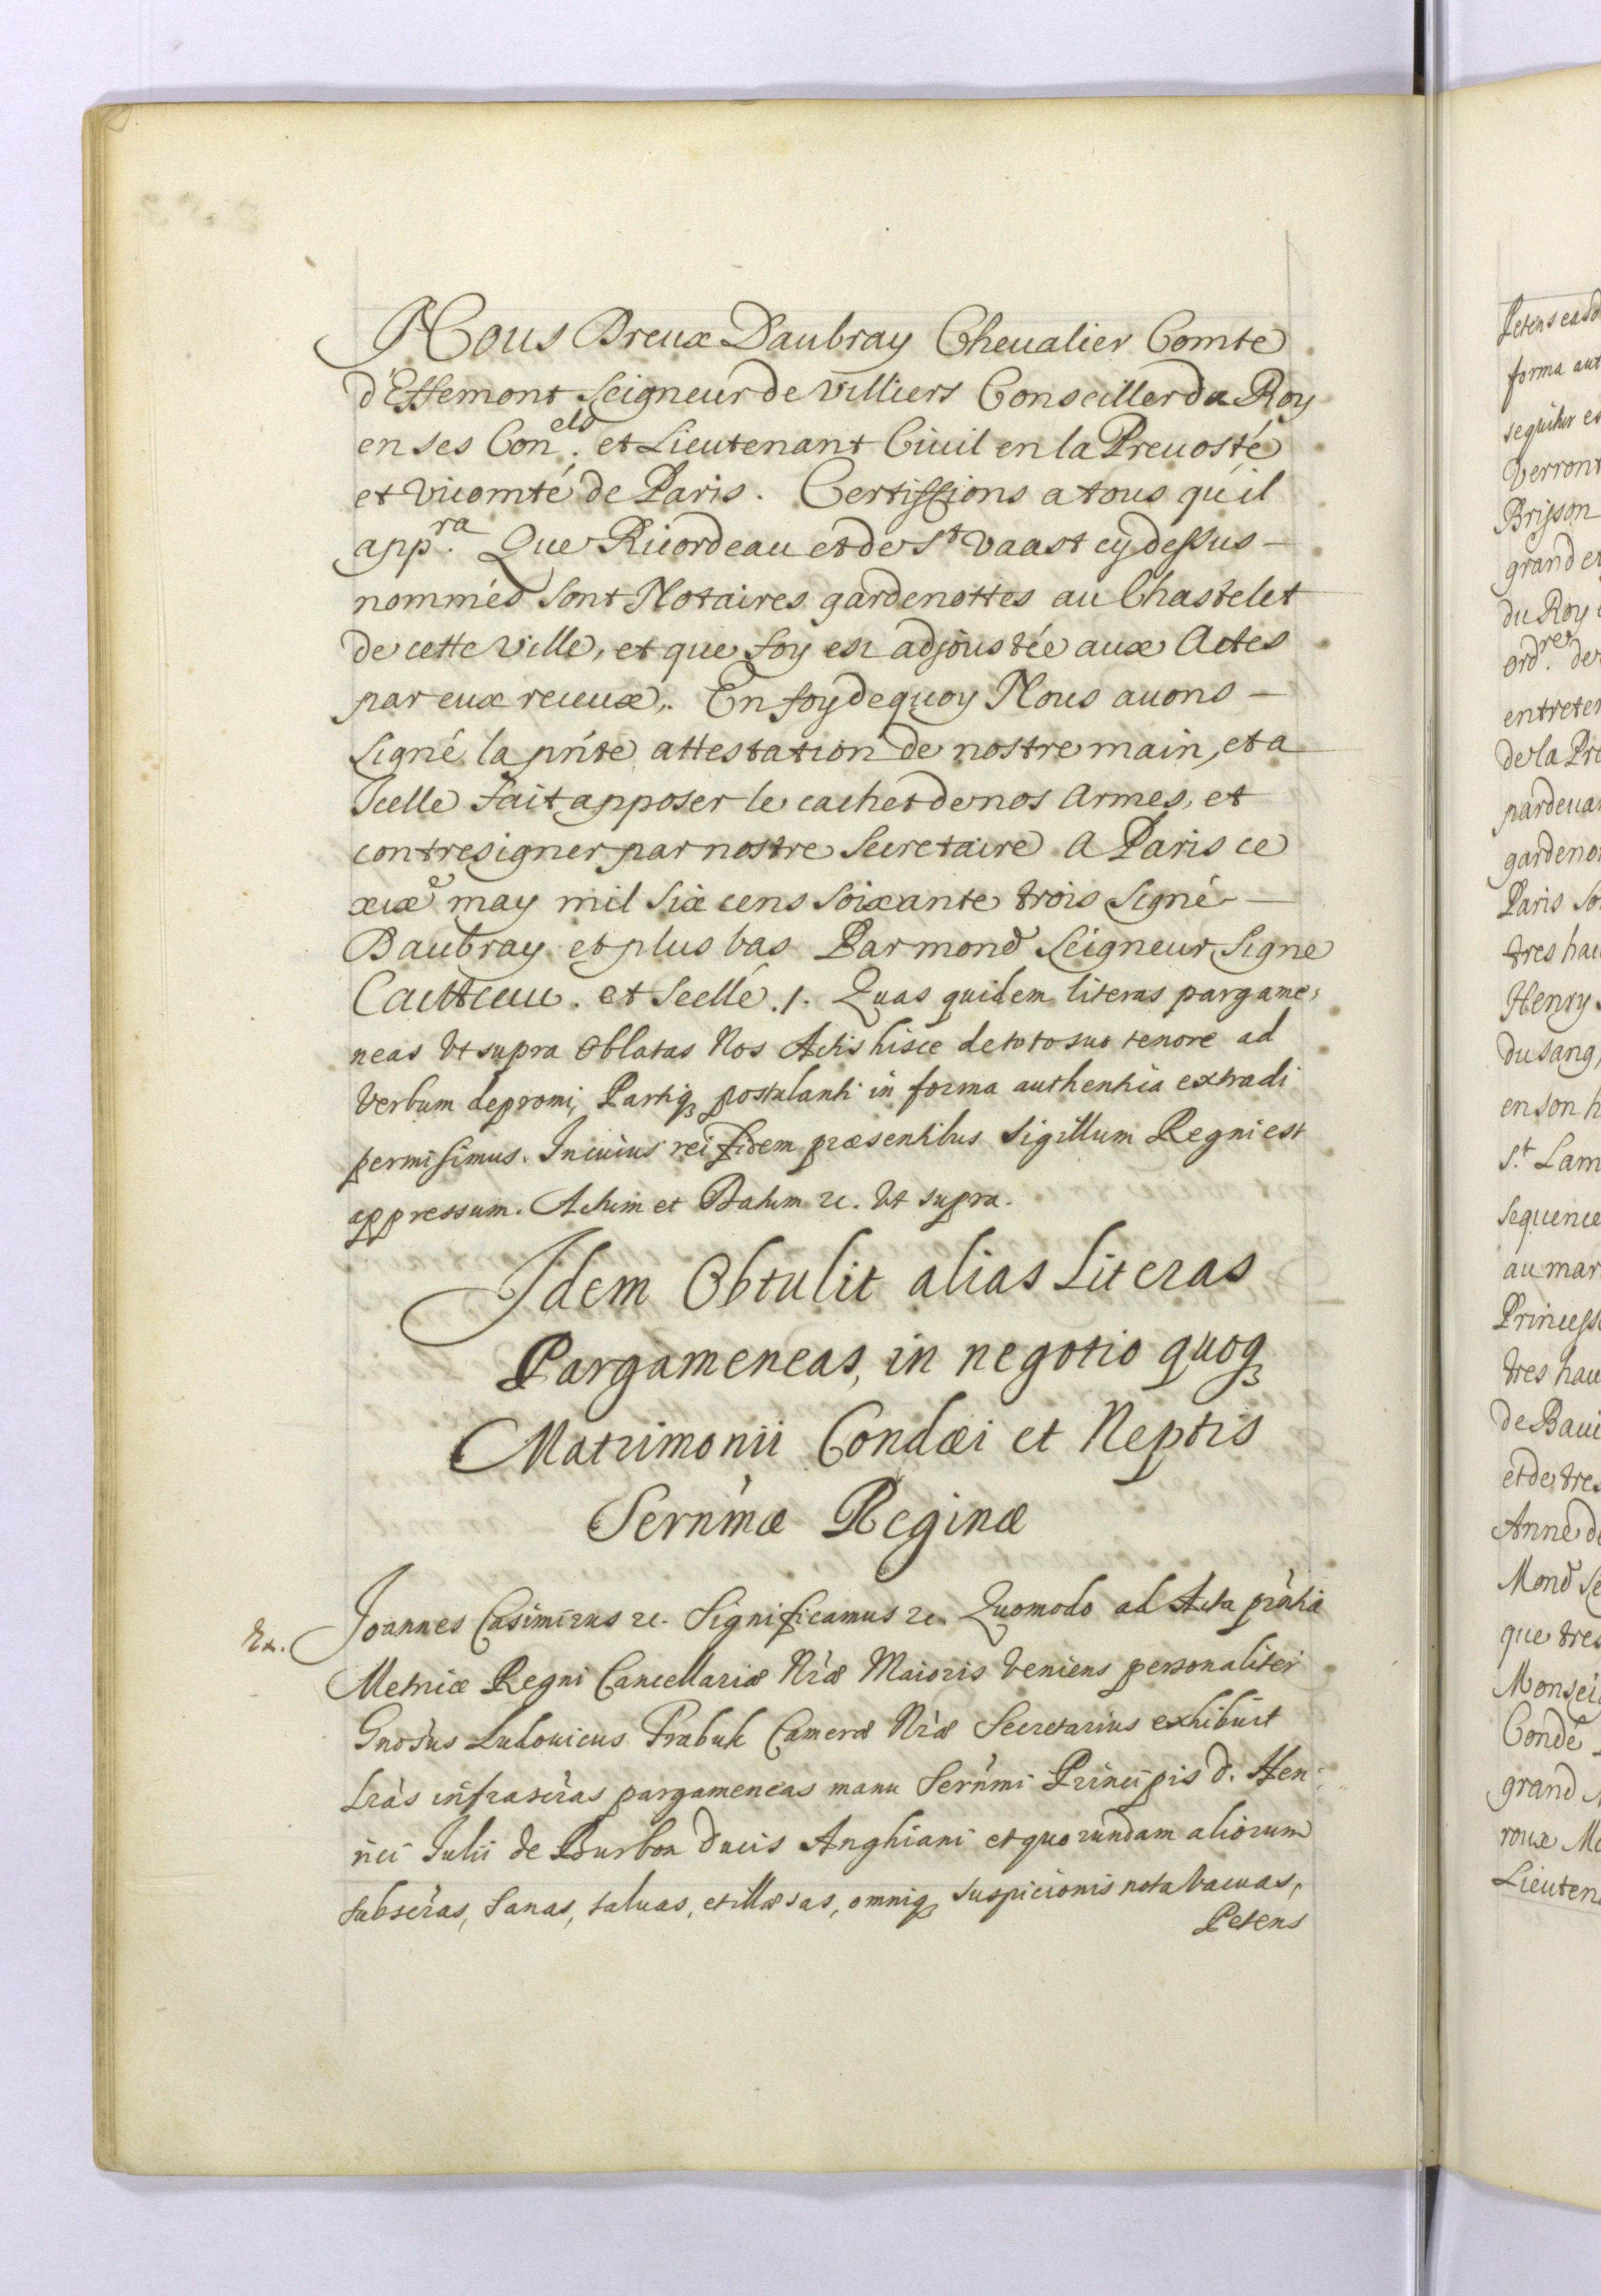 Nous Dreux Daubray Cheualier Comte
d'Effemont Seigneur de Villiers Conseiller du Roy
en ses Con.els et Lieutenant Ciuil en la Preuosté
et vicomté de Paris. Certiffions a tous qu'il
app.ra Que Ricordeau et de St Vaast cy dessus –
nommés sont Notaires gardenottes au Chastelet
de cette Ville, et que foy est adjoustée aux Actes
par eux receux,. En foy de quoy Nous auons –
Signé la pn̄te attestation de nostre main, et a
Icelle fait apposer le cachet de nos Armes, et
contresigner par nostre Secretaire A Paris ce
xixe may mil Six cens Soixante trois Signé –
Daubray et plus bas Par mond Seigneur, Signe
et Scellé ./. Quas quidem literas pargame,
neas Vt supra Oblatas Nos Actis hisce de toto suo tenore ad
Verbum depromi, Partiq₃ postulanti in forma authentica extradi
permisimus. In cuius rei fidem præsentibus Sigillum Regni est
appressum. Actum et Datum ꝛc. Vt supra.
Idem Obtulit alias Literas
Pargameneas, in negotio quoq₃
Matrimonii Condæi et Neptis
Sern̄mæ Reginæ
Ex. Joannes Casimirus ꝛc. Significamus ꝛc. Quomodo ad Acta pn̄tia
Metricæ Regni Cancellariæ Nr̄æ Maioris Veniens personaliter
Gnosus Ludouicus Frabuk Cameræ Nr̄æ Secretarius exhibuit
Lrās infrascrās pargameneas manu Sern̄mi Principis D. Hen
rici Julii de Burbon Ducis Anghiani et quorundam aliorum
subscrās, Sanas, saluas, et illæsas, omniq₃ suspicionis nota Vacuas,
Petens
Petens
forma aut
sequitur es
Verront
Brisson
grand et
du Roy
ord.res de
entreten
de la Pre
pardeuan
gardenot
Paris So
tres hau
Henry
du Sang
en son h
S.t Lam
Sequence
au mar
Princess
tres hau
de Baui
et de tres
Anne de
Mond Se
que tres
Monseig
Condé
grand M
roux Me
Lieuten